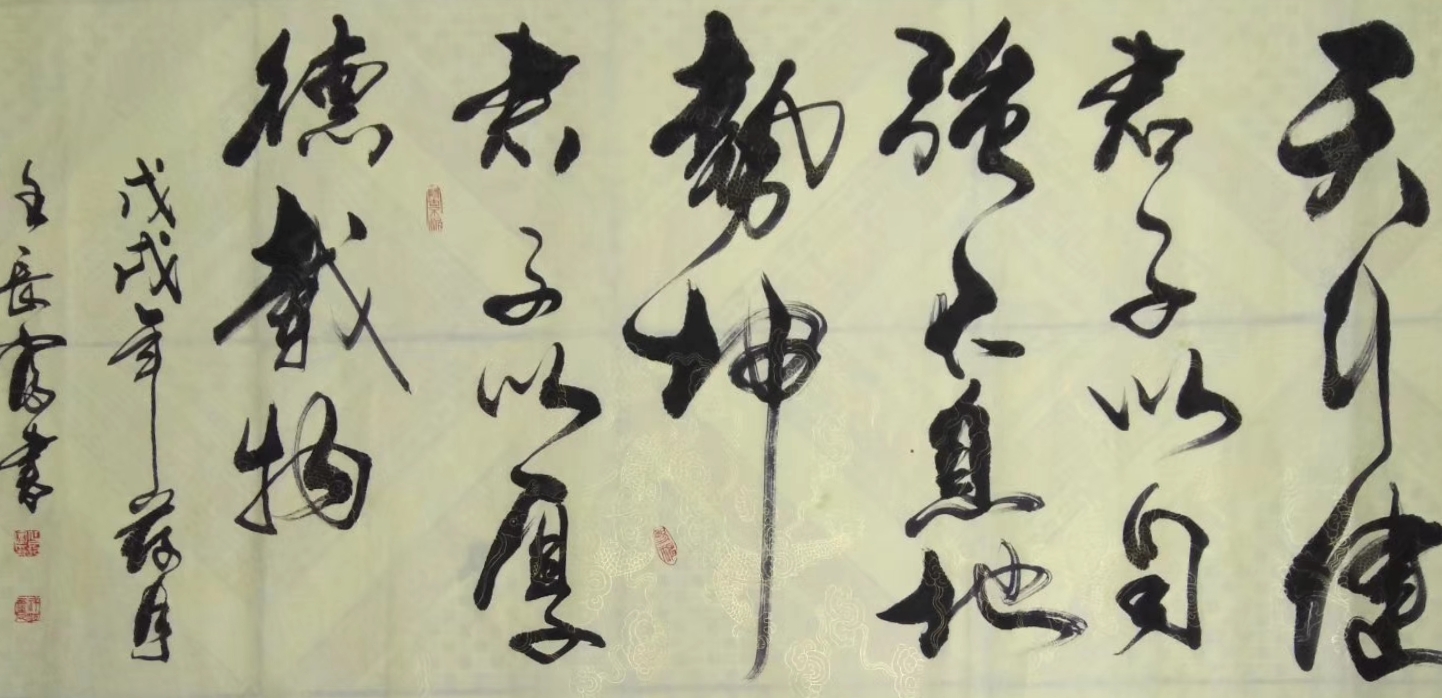 天行健
君子以自
強不息地
勢坤
君子以厚
德載物
戊戌年月
長富書